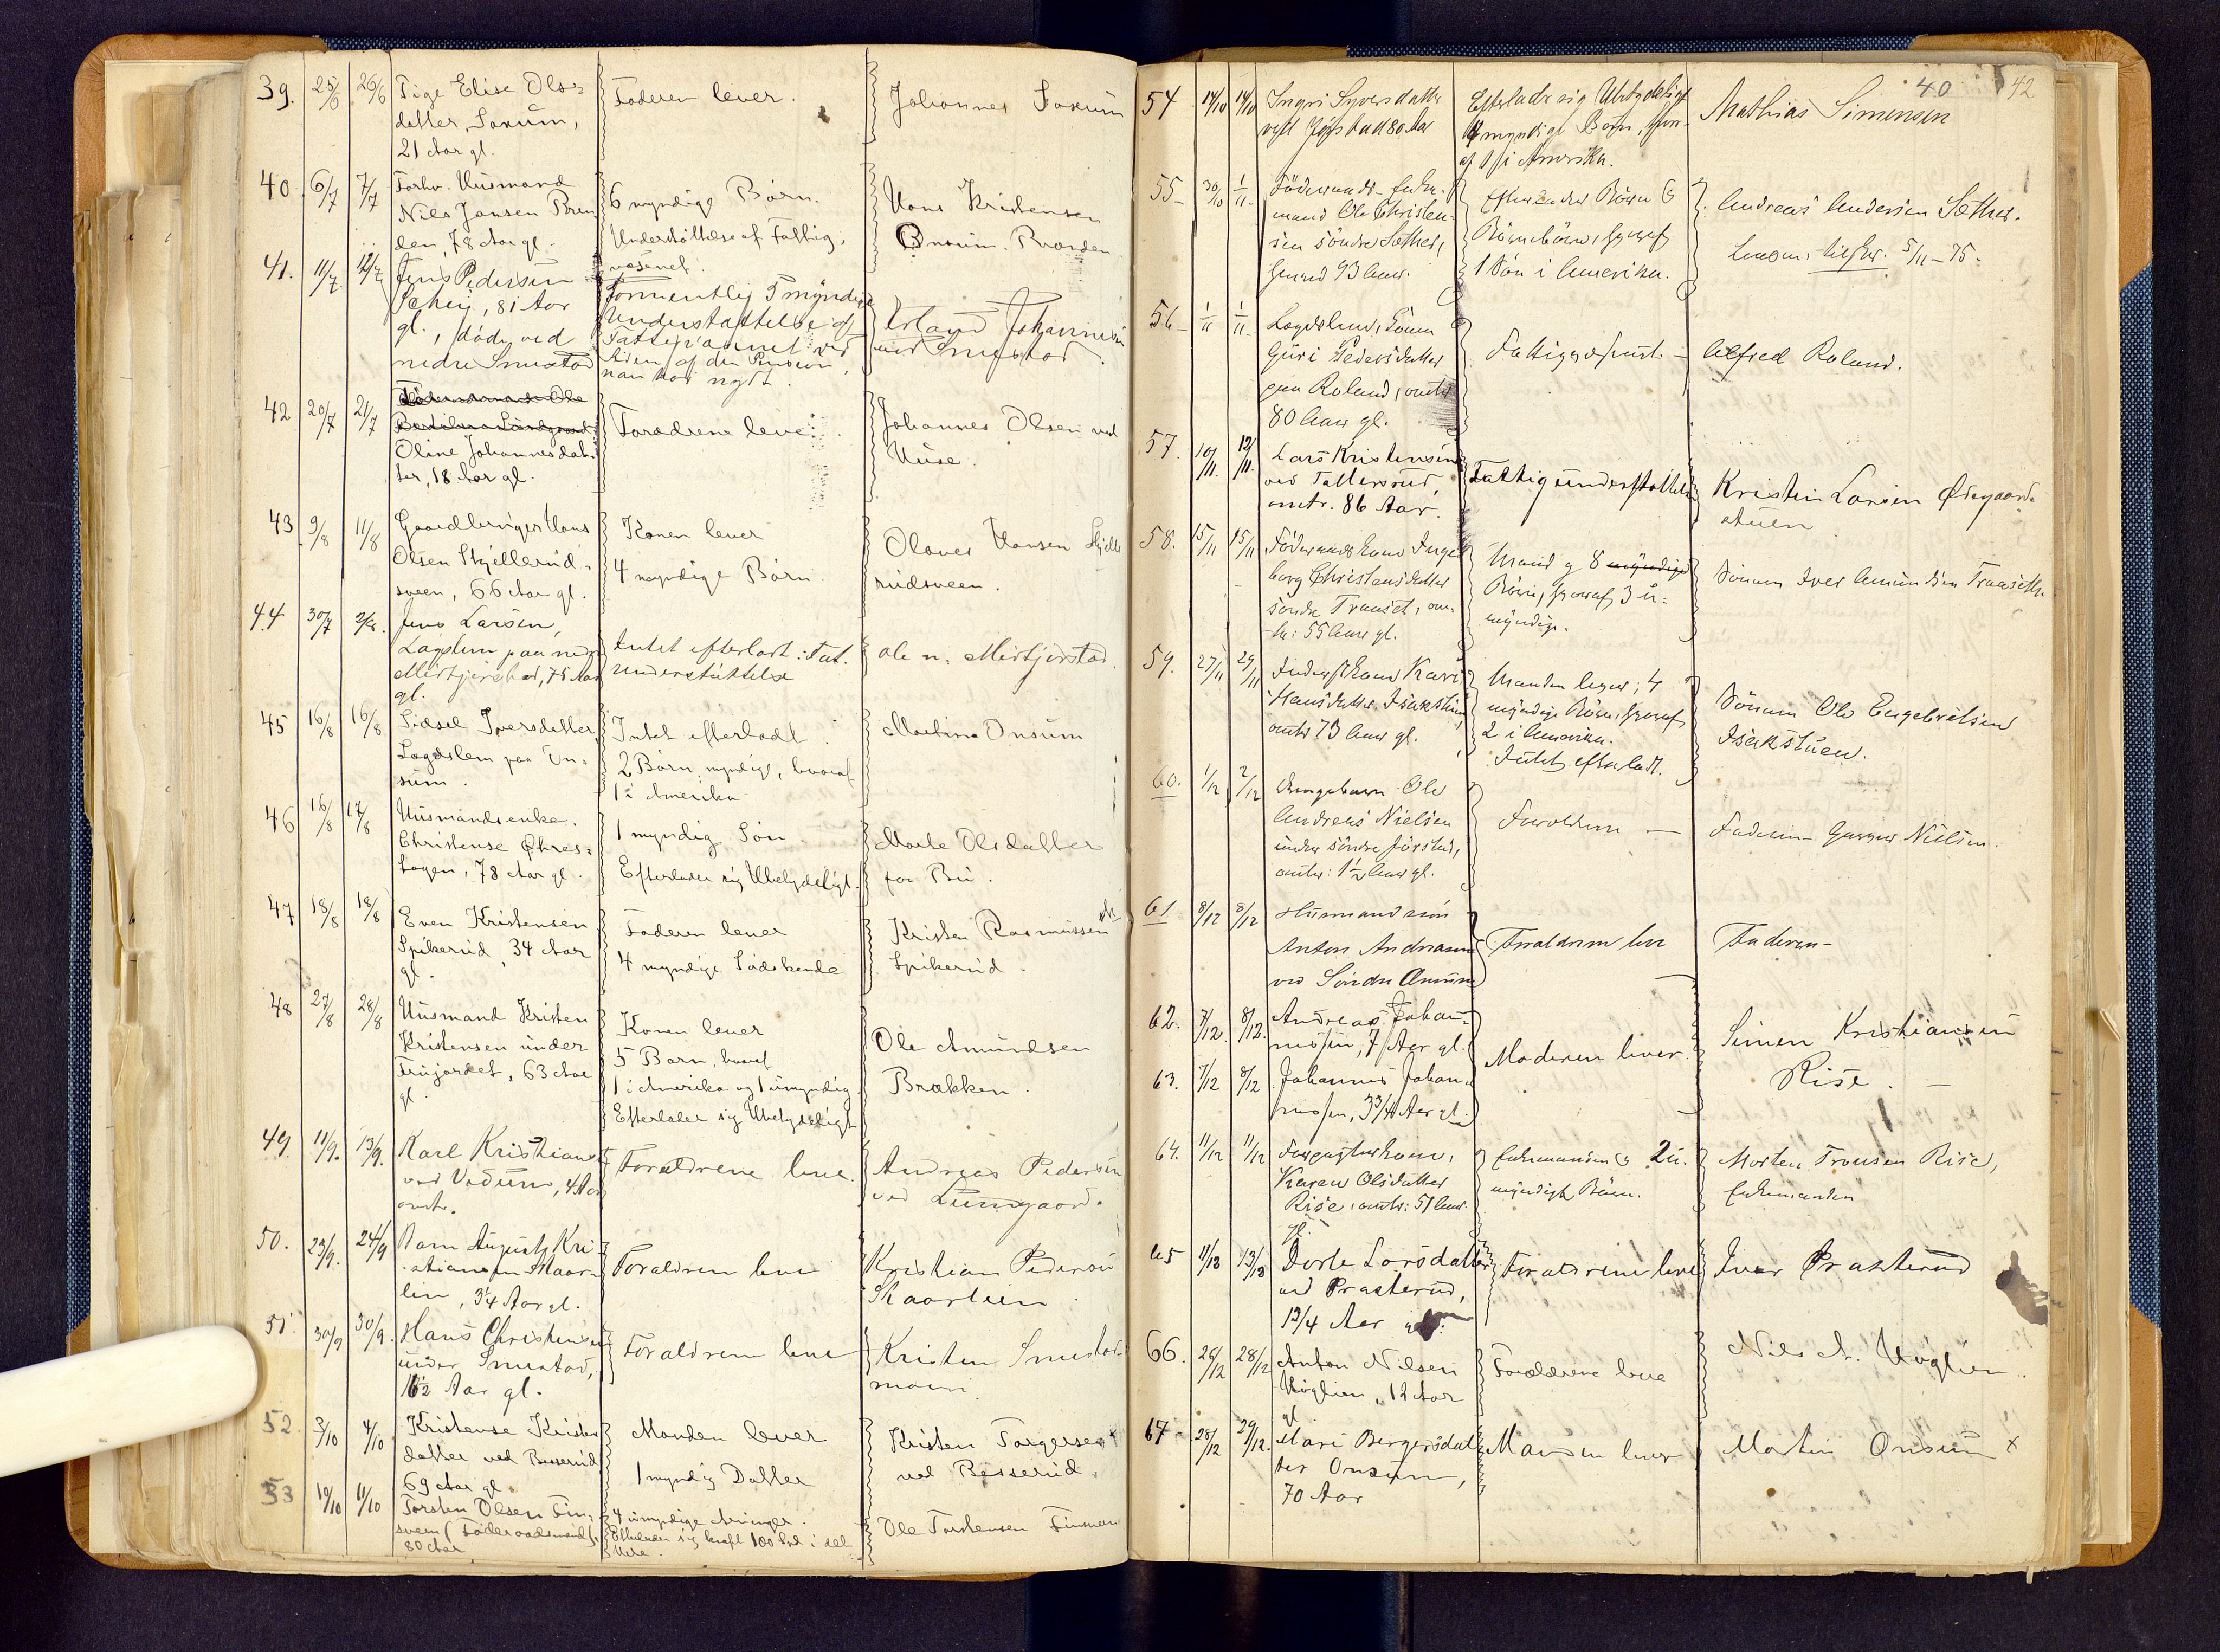 39. 25/6 26/6 Pige Elise Ols=
datter, Saxum,
21 Aar gl.
Faderen lever.
Johannes Saxum
40 6/7 7/7 Forhv. Husmand
Nils Jansen Bren
den, 78 Aar gl.
6 myndige Børn.
Understøttelse af Fattig,
væsenet.
Hans Kristensen
Onsum
41. 11/7 12/7 Jens Pedersen
81 Aar
gl., døde ved
nedre Smestad
Formentlig 5 myndige
Understøttelse af
Fattigvæsenet ved
Siden af den Pension,
han har nydt.
Erland Johannesen
ved Smestad
42 20/7 21/7
Oline Johannesdat=
ter, 18 Aar gl.
Forældrene leve.
Johannes Olsen ved
Huse.
43 9/8 11/8 Gaardbruger Hans
Olsen Skjellerud=
sveen, 66 Aar gl.
Konen lever
4 myndige Børn.
Olaves Hansen Skjelle
rudsveen.
44 30/7 2/8. Jens Larsen,
Lægdslem paa nedre
75 Aar
gl.
Intet efterladt: Fat.
understøttelse
Ole n.
45 16/8 16/8 Sidsel Iversdatter,
Lægdslem paa On=
sum.
Intet efterladt
2 Børn, myndige, hvoraf
1 i Amerika
Martin Onsum
46 16/8 17/8 Husmandsenke.
Christense Ekres=
hagen, 78 Aar gl.
1 myndig Søn.
Efterlader sig Ubetydeligt.
Marte Olsdatter
paa Bu.
47 18/8 18/8 Even Kristensen
Spikerud, 34 Aar
gl.
Faderen lever
4 myndige Sødskende
Kristen Rasmussen
Spikerud.
48 27/8 28/8 Husmand Kristen
Kristensen under
Trujordet, 63 Aar
gl.
Konen lever
5 Børn, hvoraf
1 i Amerika og 1 umyndig.
Efterlader sig Ubetydeligt
Ole Amundsen
Brækken.
49. 11/9. 13/9. Karl Kristians
ved Vedum, 4 Aar
omtr.
Forældrene leve.
Andreas Pedersen
ved Lumgaard.
50. 23/9. 24/9 Barn August Kri
stiansen Skaar=
lien, 3/4 Aar gl.
Forældrene leve
Kristian Pedersen
Skaarlien.
51. 30/9 30/9. Hans Christensen
under Smestad,
16½ Aar gl.
Forældrene leve
Kristen Smestad
moen.
52. 3/10 4/10 Kristense Kristen
datter ved Besserud
69 Aar gl.
Manden lever
1 myndig Datter
Kristen Torgersen
ved Besserud.
53 10/10 11/10 Torsten Olsen Fin=
sveen (Føderaadsmand),
80 Aar
4 umyndige Arvinger.
Efterlader sig knapt 100 Spd i det
Hele.
Ole Torstensen Finsveen
40 42
54 14/10 14/10 Ingri Syversdatter
ved Jørstad 80 Aar
Efterlader sig Ubetydeligt
4 myndige Børn, hvor=
af 1 i Amerika.
Mathias Simensen
55 30/10 1/11 Føderaads-Enke=
mand Ole Christen=
sen søndre Sæther,
93 Aar.
Efterlader Børn &
Børnebørn, hvoraf
1 Søn i Amerika.
Andreas Andersen Sæther.
5/11-75.
56 1/11 1/11 Lægdslem, Konen
Guri Pedersdatter
paa Roland, omtr
80 Aar gl.
Fattigunderst.
Alfred Roland.
57. 10/11. 12/11. Lars Kristensen
ved Tallerud,
omtr. 86 Aar.
Fattigunderstøttelse
Kristen Larsen Ødegaard
stuen
58. 15/11 15/11 Føderaadskone Inge
borg Christensdatter
søndre Traaset, om=
tr: 55 Aar gl.
Mand og 8 myndige
Børn, hvoraf 3 u=
myndige.
Sønnen Iver Amundsen Traaseth.
59. 27/11 29/11 Inderstkone Kari
Hansdatter Isakstuen
omtr 73 Aar gl.
Manden lever; 4
myndige Børn, hvoraf
2 i Amerika.
Intet efterladt.
Sønnen Ole Engebretsen
Isakstuen.
60. 1/12 2/12 Drengebarn Ole
Andreas Nielsen
under søndre Jørstad,
omtr: 1½ Aar gl.
Forældrene
Faderen Nielsen.
61 8/12 8/12 Husmandssøn
Anton Andreasen
ved Søndre Onsum
Forældrene leve
Faderen-
62. 7/12. 8/12. Andreas Johan=
nesen, 7 Aar gl.
Moderen lever.
Simen Kristiansen
Rise.
63. 7/12 8/12 Johannes Johan=
nesen, 3¾ Aar gl.
64. 11/12 11/12
Karen Olsdatter
Rise, omtr: 51 Aar
gl.
Enkemanden & 2 u.
myndige Børn.
Morten Rise,
Enkemanden
65 11/12 13/12 Dorte Larsdatter
ved Præsterud,
1¾ Aar
Forældrene leve
Iver Præsterud
66. 26/12 28/12 Anton Nilsen
Høglien, 12 Aar
gl
Forældrene leve
Nils A. Høglien.
67 28/12 29/12. Mari Børgersdat
ter Onsum,
70 Aar
Manden lever
Martin Onsum x